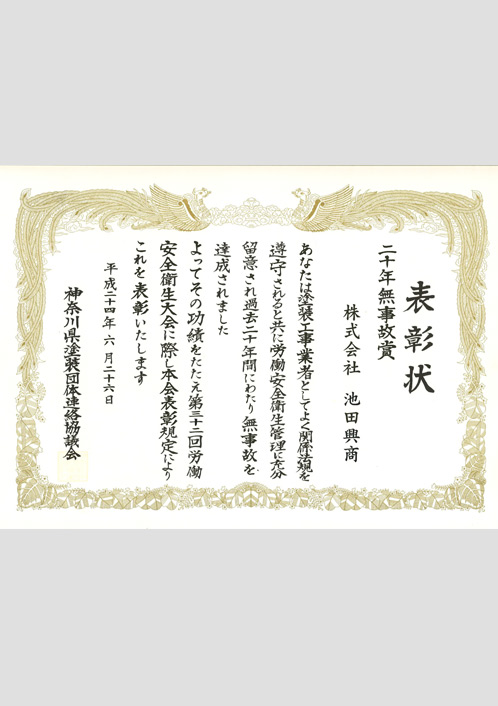 表彰状
二十年無事故賞
株式会社 池田興商
あなたは塗装工事業者としてよく関係法規を
遵守されると共に労働安全衛生管理に充分
留意され過去二十年間にわたり無事故を
達成されました
よってその功績をたたえ第三十二回労働
安全衛生大会に際し本会表彰規定により
これを表彰いたします
平成二十四年六月二十六日
神奈川県塗装団体連絡協議会